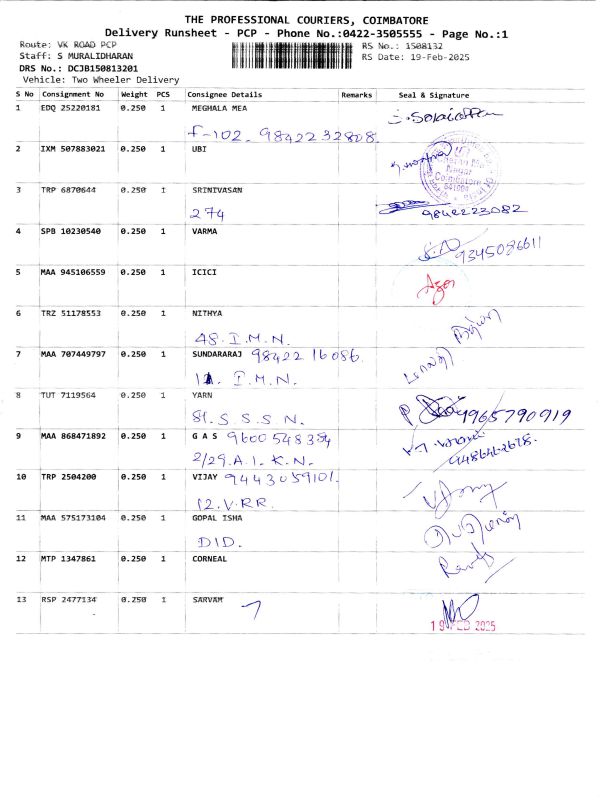 THE PROFESSIONAL COURIERS, COIMBATORE
Delivery Runsheet - PCP - Phone No.:0422-3505555 - Page No.:1
Route: VK ROAD PCP
RS No.: 1508132
Staff: S MURALIDHARAN
RS Date: 19-Feb-2025
DRS No.: DCJB150813201
Vehicle: Two Wheeler Delivery
S No Consignment No Weight PCS Consignee Details Remarks Seal & Signature
1 EDQ 25220181 0.250 1 MEGHALA MEA
F-102. 9842232808.
2 IXM 507883021 0.250 1 UBI
3 TRP 6870644 0.250 1 SRINIVASAN
274 9842223082
4 SPB 10230540 0.250 1 VARMA
9345086611
5 MAA 945106559 0.250 1 ICICI
6 TRZ 51178553 0.250 1 NITHYA
48. I.M.N.
7 MAA 707449797 0.250 1 SUNDARARAJ 98422 16086.
I.M.N.
8 TUT 7119564 0.250 1 YARN
81. S.S.S.N. 4965790919
9 MAA 868471892 0.250 1 G A S 9600548384
2/29.A.I.K.N.
10 TRP 2504200 0.250 1 VIJAY 9443059101.
12.V.RR.
11 MAA 575173104 0.250 1 GOPAL ISHA
DID.
12 MTP 1347861 0.250 1 CORNEAL
13 RSP 2477134 0.250 1 SARVAM
19 FEB 2025